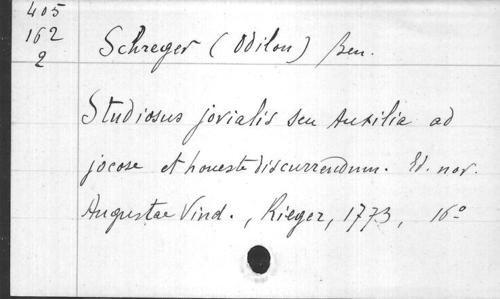 405
162
2
Schreger (Odilon) Ben.
Studiosus jovialis seu Auxilia ad
jocose et honeste discurrendum. Ed. nov.
Augustae Vind., Rieger, 1773, 16°